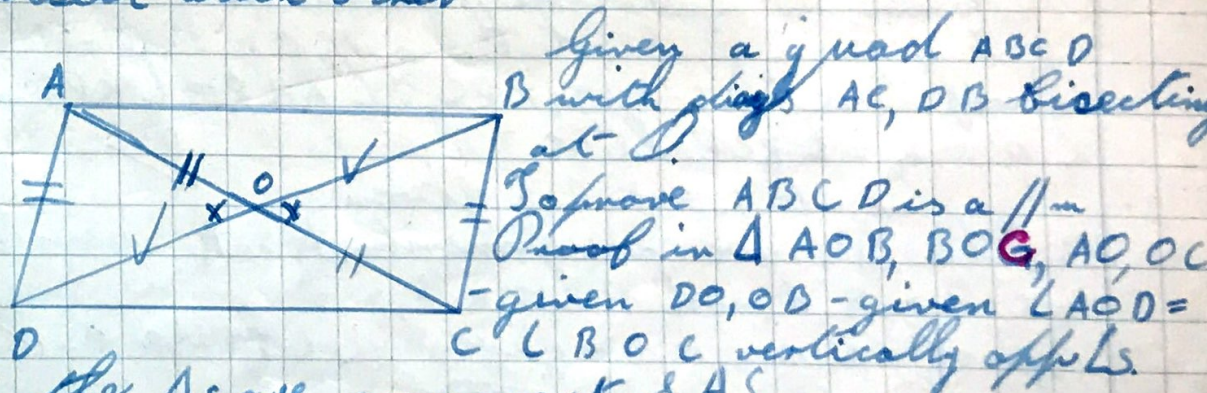 Given a quad ABCD
A
B with diags AC, DB bisecting
at O.
O
To prove ABCD is a //m
Proof in Δ AOB, BOG, AO, OC
-given DO, OB - given ∠AOD =
D
C ∠BOC vertically opp ∠s.